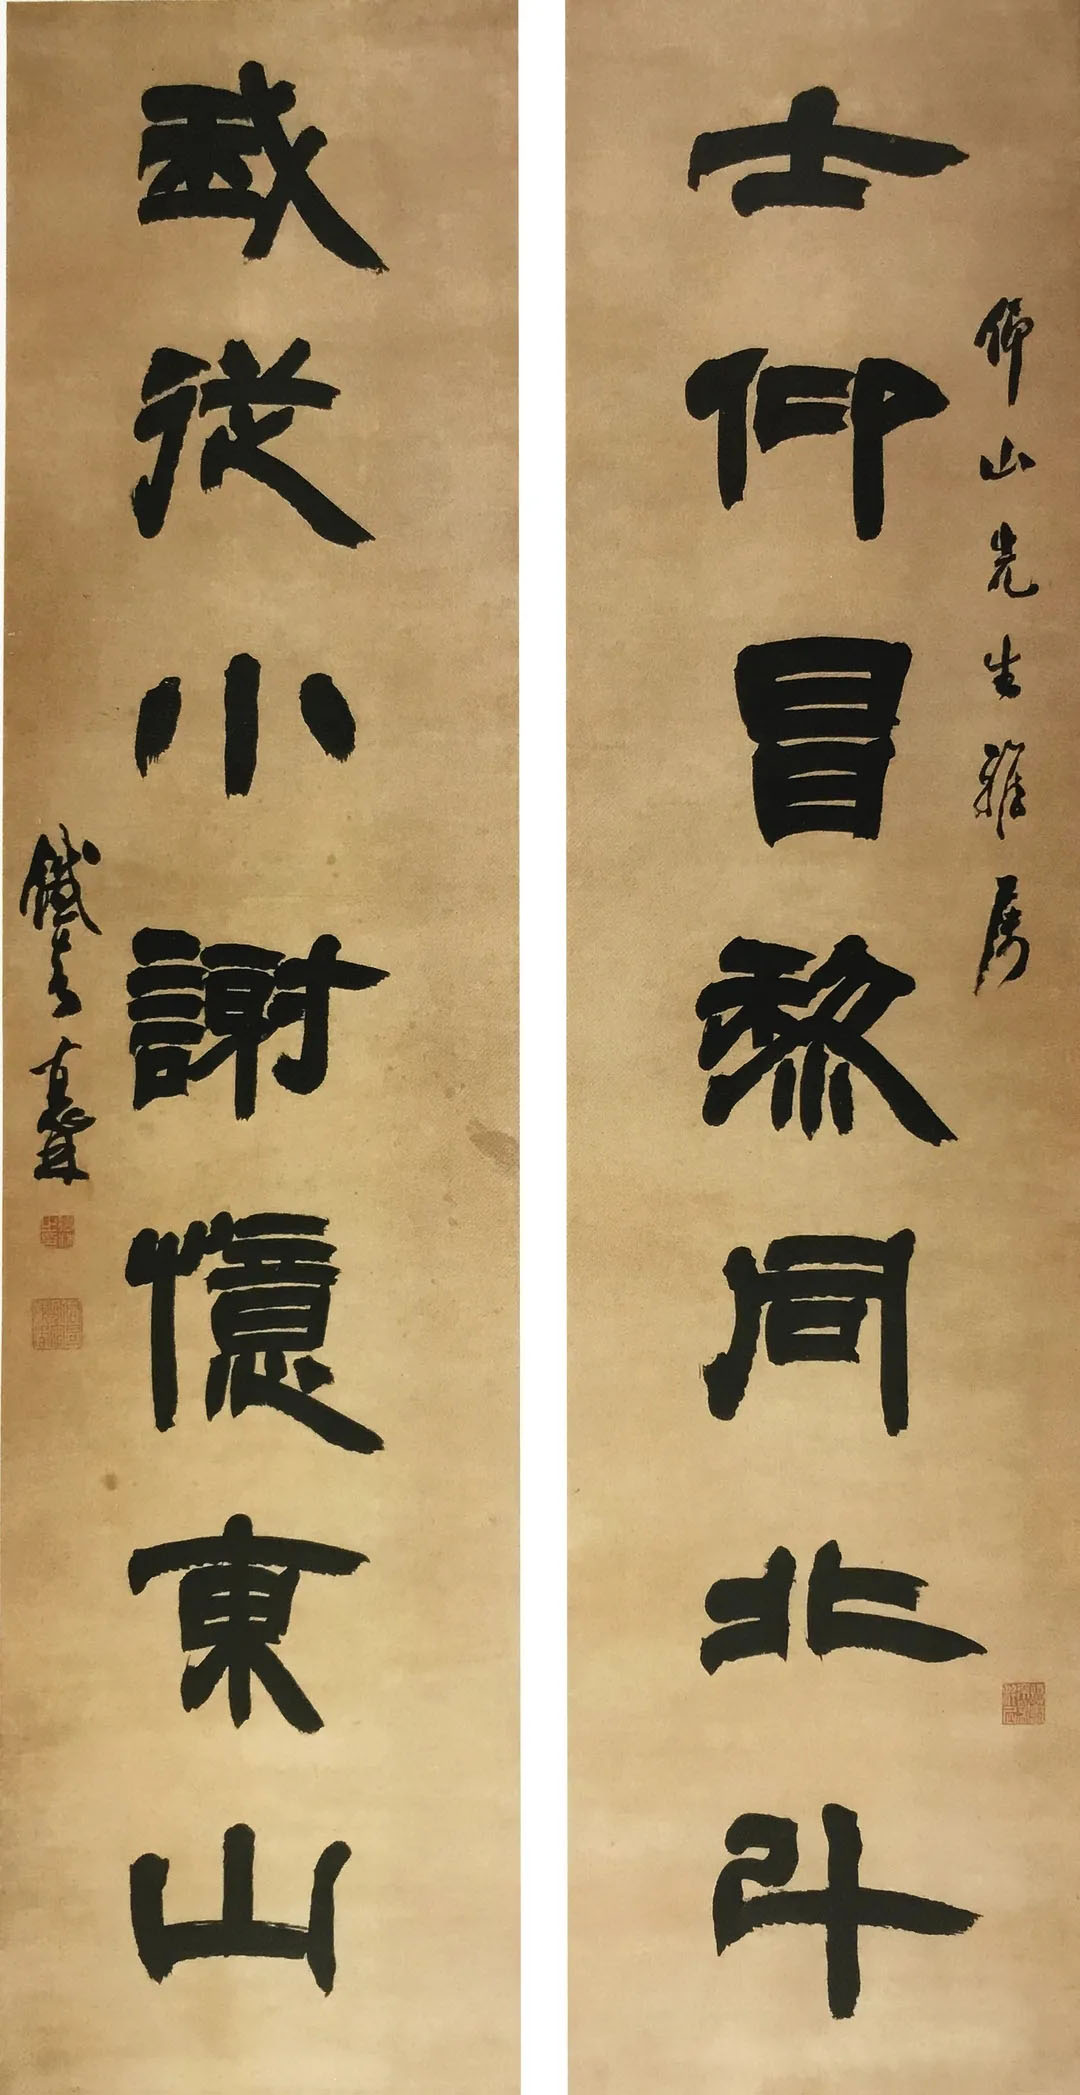 仰山先生雅屬
士仰昌黎同北斗
我從小謝憶東山
鐵